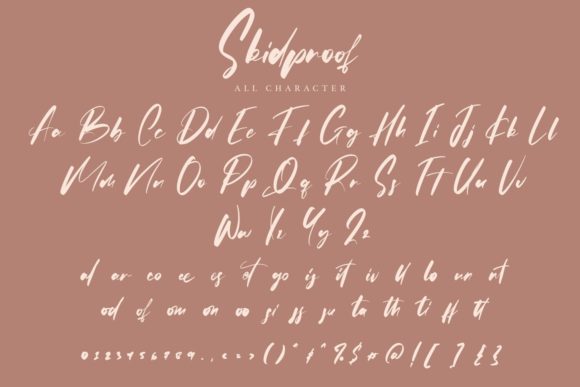 Skidproof
ALL CHARACTER
Aa Bb Cc Dd Ee Ff Gg Hh Ii Jj Kk Ll
Mm Nn Oo Pp Qq Rr Ss Tt Uu Vv
Ww Xx Yy Zz
al ar co ee es et go is it iv ll lo nn nt
od of om on oo si ss su ta th ti ff tt
0123456789